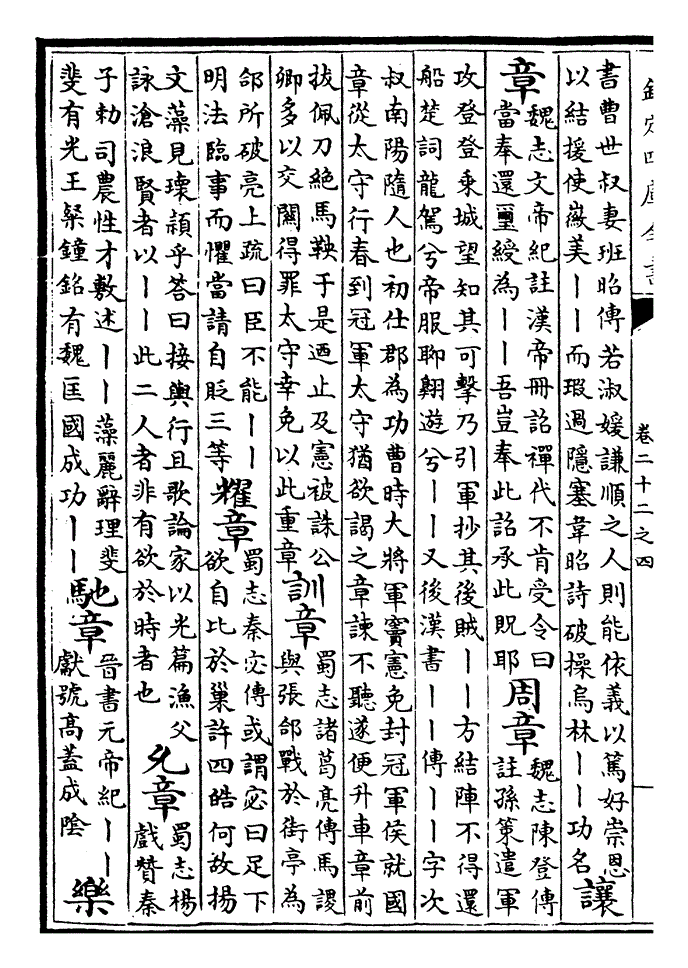 欽定四庫全書
卷二十二之四
書曹世叔妻班昭傳若淑媛謙順之人則能依義以篤好崇恩
以結援使徽美丨丨而瑕過隱塞韋昭詩破操烏林丨丨功名
讓
章
魏志文帝紀註漢帝冊詔禪代不肯受令曰
當奉還璽綬為丨丨吾豈奉此詔承此貺耶
周章
魏志陳登傳
註孫策遣軍
攻登登乘城望知其可擊乃引軍抄其後賊丨丨方結陣不得還
船楚詞龍駕兮帝服聊翺遊兮丨丨又後漢書丨丨傳丨丨字次
叔南陽隨人也初仕郡為功曹時大將軍竇憲免封冠軍侯就國
章從太守行春到冠軍太守猶欲謁之章諫不聽遂便升車章前
拔佩刀絶馬鞅于是迺止及憲被誅公
卿多以交關得罪太守幸免以此重章
訓章
蜀志諸葛亮傳馬謖
與張郃戰於街亭為
郃所破亮上疏曰臣不能丨丨
明法臨事而懼當請自貶三等
耀章
蜀志秦宓傳或謂宓曰足下
欲自比於巢許四皓何故揚
文藻見瓌頴乎答曰接輿行且歌論家以光篇漁父
詠滄浪賢者以丨丨此二人者非有欲於時者也
允章
蜀志楊
戲贊秦
子勅司農性才敷述丨丨藻麗辭理斐
斐有光王粲鐘銘有魏匡國成功丨丨
馳章
晉書元帝紀丨丨
獻號高蓋成陰
樂